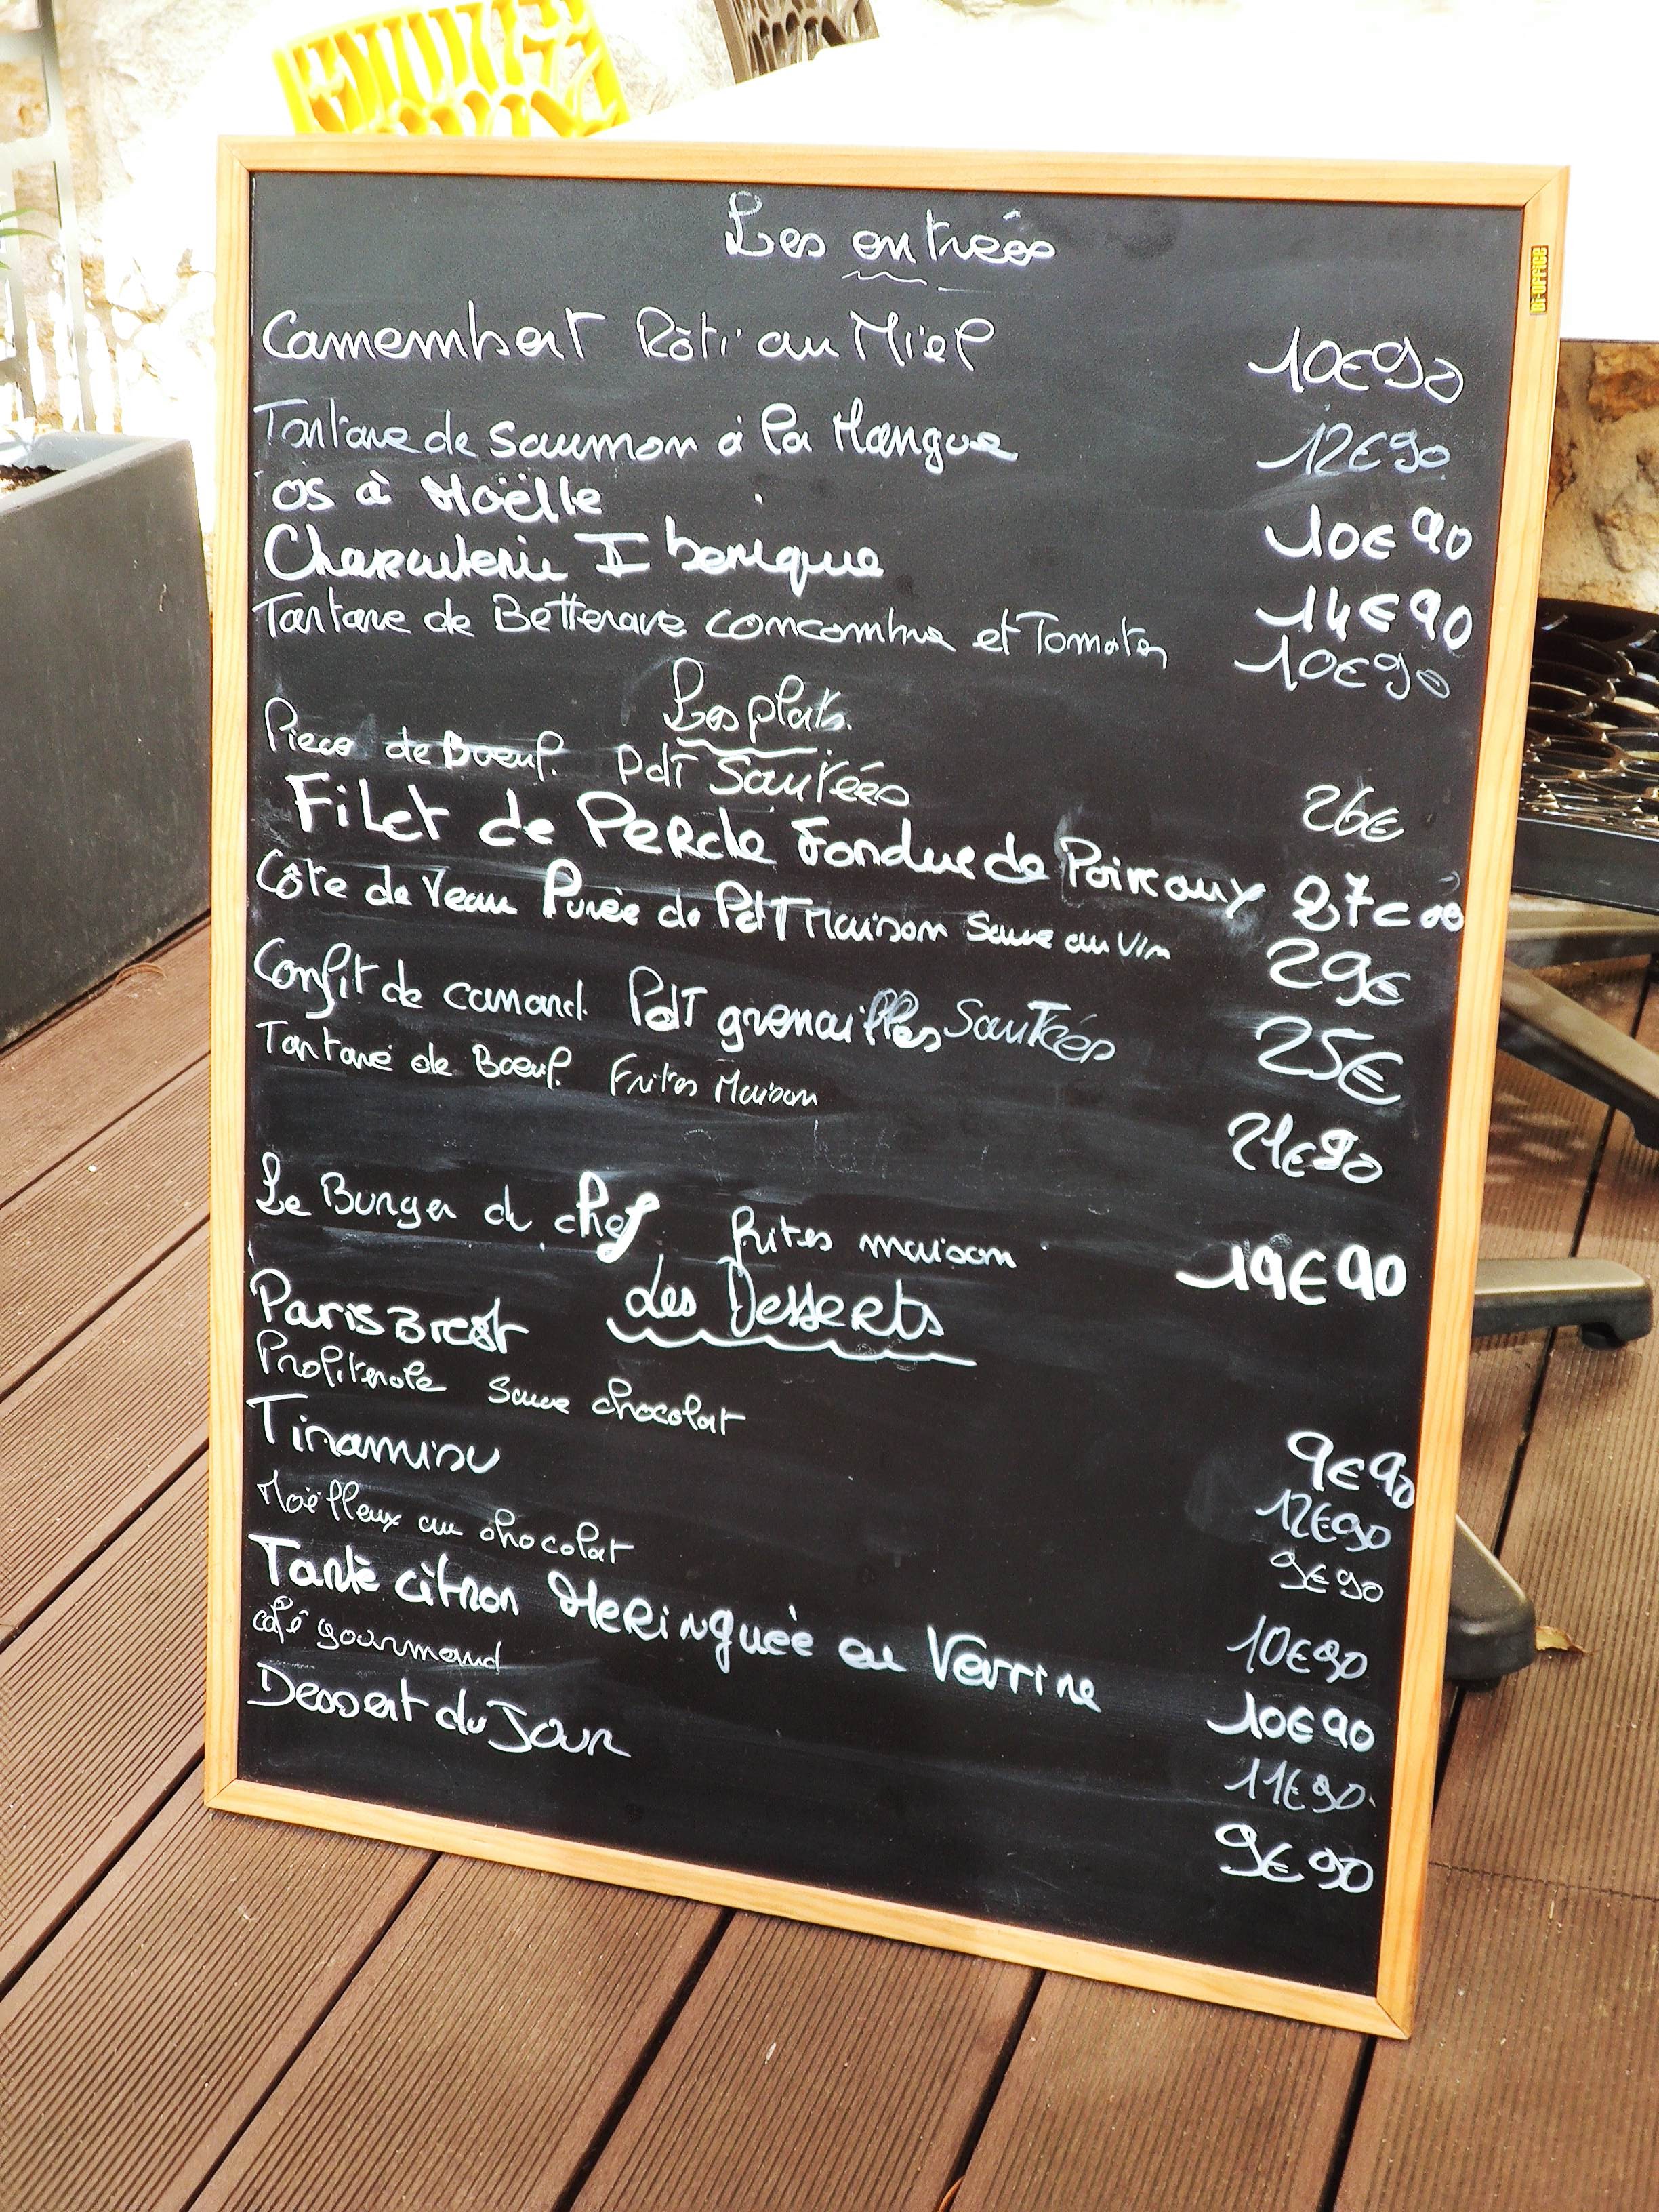 Les entrées
Camembert Rôti au Miel 10€90
Tartare de saumon à la Mangue 12€90
os à Moëlle 10€90
Charcuterie Iberique 14€90
Tartare de Betterave concombre et Tomates 10€90
Les plats
Piece de Boeuf PdT Sautées 26€
Filet de Perche Fondue de Poireaux 27€00
Côte de Veau Purée de PdT Maison Sauce au Vin 29€
Confit de canard PdT grenailles Sautées 25€
Tartare de Boeuf Frites Maison 21€90
Le Burger du chef frites maison 19€90
Les Desserts
Paris Brest 9€90
Profiterole sauce chocolat 12€90
Tiramisu 9€90
Moëlleux au chocolat 10€90
Tarte citron Meringuée en Verrine 10€90
café gourmand 11€90
Dessert du Jour 9€90
BI-OFFICE